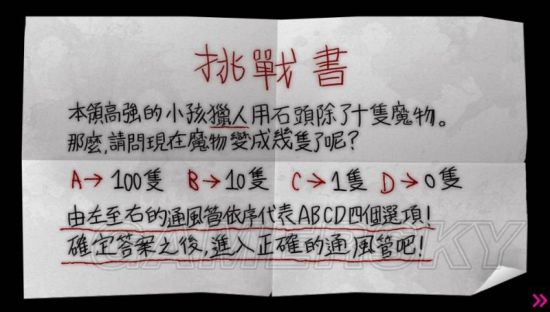 挑戰書
本領高強的小孩獵人用石頭除了十隻魔物。
那麼,請問現在魔物變成幾隻了呢?
A→100隻 B→10隻 C→1隻 D→0隻
由左至右的通風管依序代表ABCD四個選項!
確定答案之後,進入正確的通風管吧!
GAMERSKY